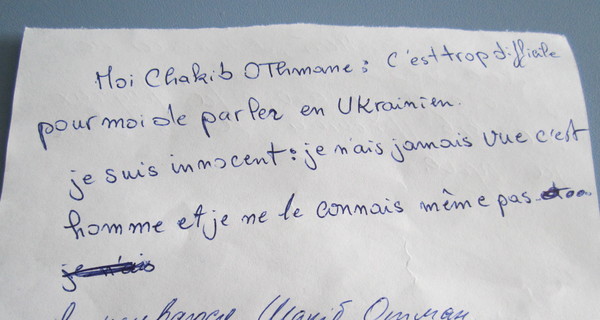 Moi Chakib OThmane : c'est trop difficile
pour moi de parler en Ukrainien.
je suis innocent : je n'ais jamais vue c'est
homme et je ne le connais même pas
je n'ais
Шакіб Отман